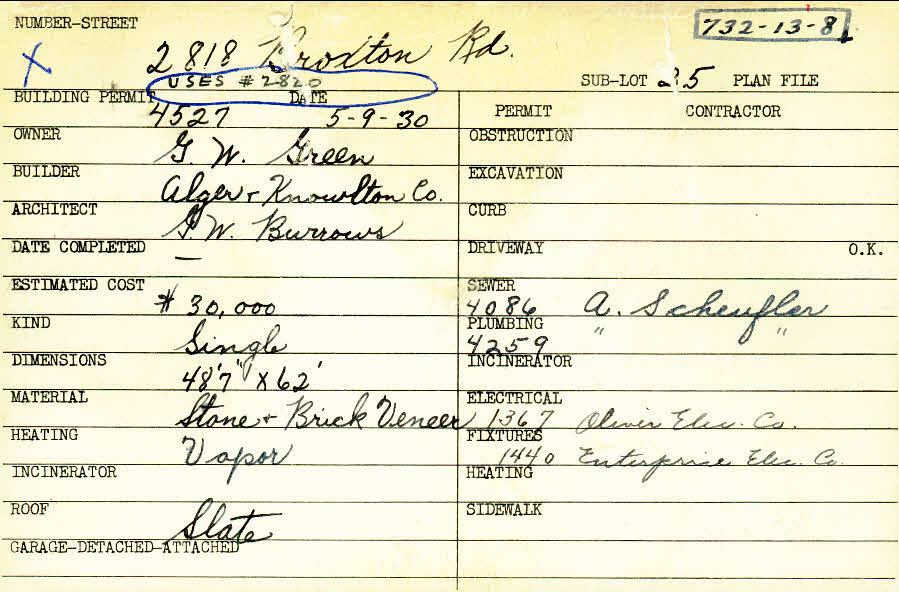 NUMBER-STREET
732-13-8
X 2818 Broxton Rd.
USES #2820
SUB-LOT 25 PLAN FILE
BUILDING PERMIT DATE
4527 5-9-30
PERMIT CONTRACTOR
OWNER
G. W. Green
OBSTRUCTION
BUILDER
Alger + Knowlton Co.
EXCAVATION
ARCHITECT
G. W. Burrows
CURB
DATE COMPLETED
—
DRIVEWAY O.K.
ESTIMATED COST
$ 30,000
SEWER
4086 A. Scheufler
KIND
Single
PLUMBING
4259 " "
DIMENSIONS
48'7" X 62'
INCINERATOR
MATERIAL
Stone + Brick Veneer
ELECTRICAL
1367 Oliver Elec. Co.
HEATING
Vapor
FIXTURES
1440 Enterprise Elec. Co.
INCINERATOR
HEATING
ROOF
Slate
SIDEWALK
GARAGE-DETACHED-ATTACHED